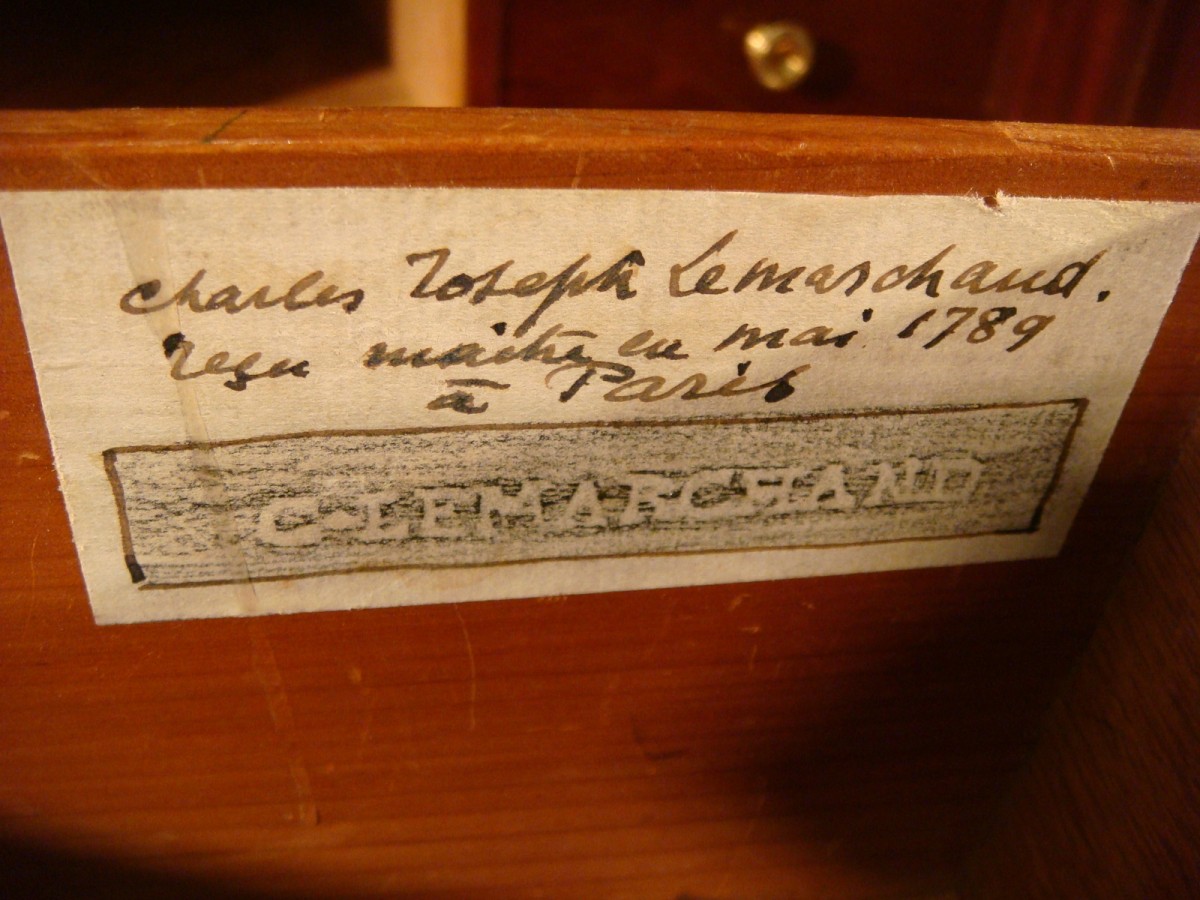 Charles Joseph Lemarchand.
reçu maître en mai 1789
à Paris
C·LEMARCHAND